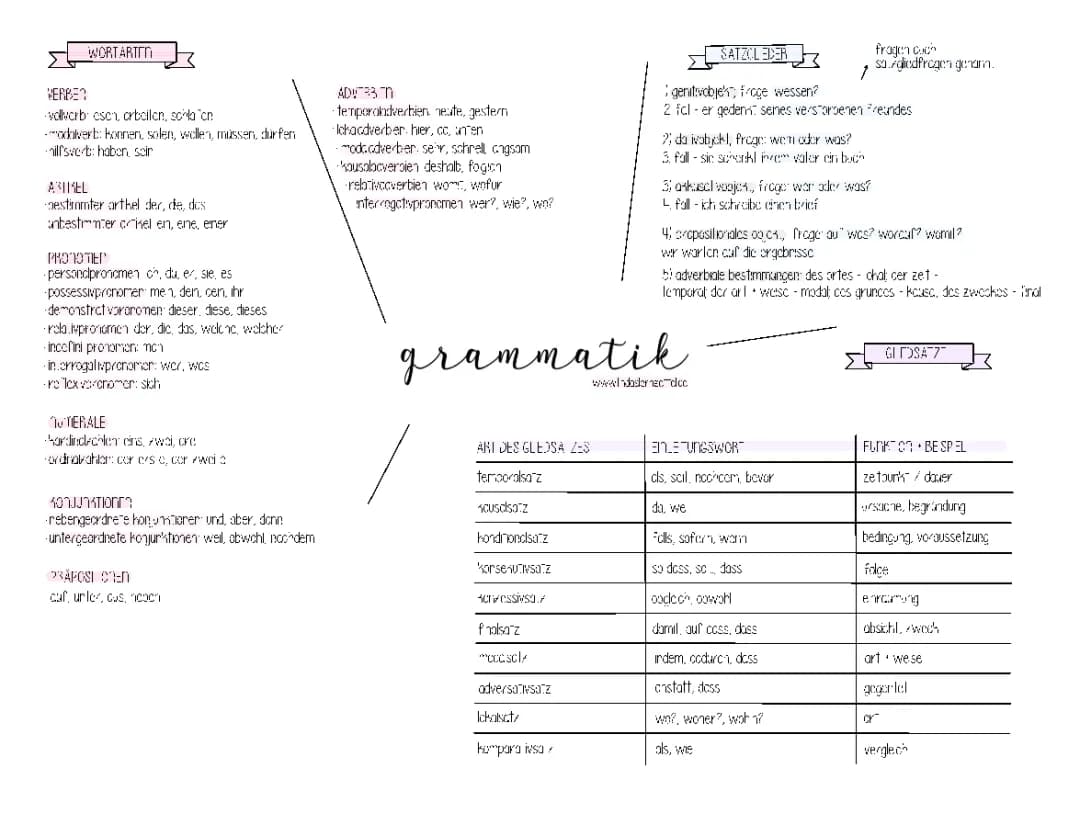 WORTARTEN
VERBEN
-vollverb: essen, arbeiten, schlafen
-modalverb: können, sollen, wollen, müssen, dürfen
-hilfsverb: haben, sein
ARTIKEL
-bestimmter artikel: der, die, das
-unbestimmter artikel: ein, eine, einer
PRONOMEN
-personalpronomen: ich, du, er, sie, es
-possessivpronomen: mein, dein, sein, ihr
-demonstrativpronomen: dieser, diese, dieses
-relativpronomen: der, die, das, welche, welcher
-indefinitpronomen: man
-interrogativpronomen: wer, was
-reflexivpronomen: sich
NUMERALE
-kardinalzahlen: eins, zwei, drei
-ordinalzahlen: der erste, der zweite
KONJUNKTIONEN
-nebengeordnete konjunktionen: und, aber, denn
-untergeordnete konjunktionen: weil, obwohl, nachdem
PRÄPOSITIONEN
auf, unter, aus, neben
ADVERBIEN
-temporaladverbien: heute, gestern
-lokaladverbien: hier, da, unten
-modaladverbien: sehr, schnell, langsam
-kausaladverbien: deshalb, folglich
-relativadverbien: womit, wofür
-interrogativpronomen: wer?, wie?, wo?
SATZGLIEDER
fragen auch
satzgliedfragen genannt
1) genitivobjekt; frage: wessen?
2. fall - er gedenkt seines verstorbenen freundes
2) dativobjekt; frage: wem oder was?
3. fall - sie schenkt ihrem vater ein buch
3) akkusativobjekt; frage: wen oder was?
4. fall - ich schreibe einen brief
4) präpositionales objekt; frage: auf was? worauf? womit?
wir warten auf die ergebnisse
5) adverbiale bestimmungen: des ortes - lokal; der zeit -
temporal; der art + weise - modal; des grundes - kausal, des zweckes - final
grammatik
GLIEDSÄTZE
ART DES GLIEDSATZES EINLEITUNGSWORT FUNKTION + BEISPIEL
temporalsatz als, seit, nachdem, bevor zeitpunkt / dauer
kausalsatz da, weil ursache, begründung
konditionalsatz falls, sofern, wenn bedingung, voraussetzung
konsekutivsatz so dass, dass folge
konzessivsatz obgleich, obwohl einräumung
finalsatz damit, auf dass, dass absicht, zweck
modalsatz indem, dadurch, dass art + weise
adversativsatz anstatt, dass gegenteil
lokalsatz wo?, woher?, wohin? ort
komparativsatz als, wie vergleich